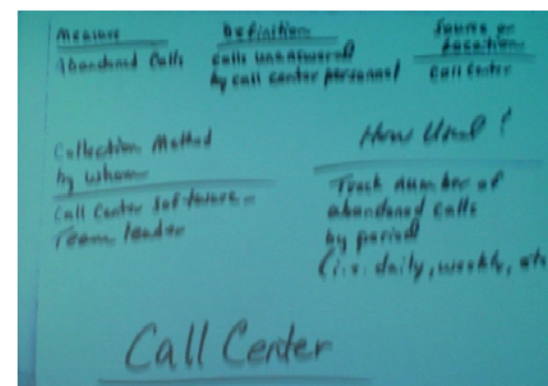 Measure
Abandoned Calls
Definition
calls unanswered
by call center personnel
Source or
Location
Call Center
Collection Method
by whom
Call Center Software -
Team leader
How Used?
Track number of
abandoned calls
by period
(i.e. daily, weekly, etc
Call Center